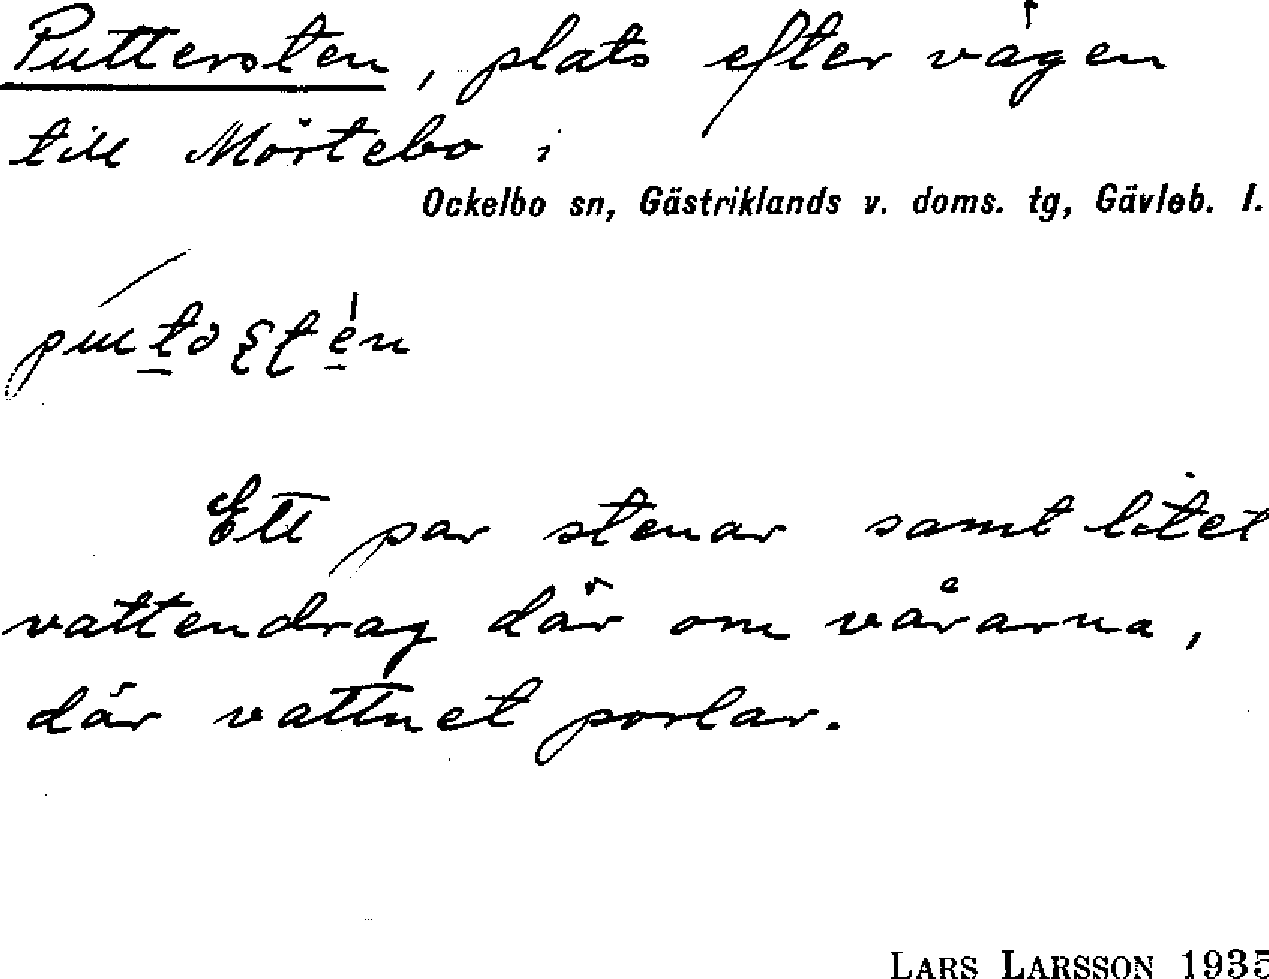 Puttersten, plats efter vägen
till Mörtebo i
Ockelbo sn, Gästriklands v. doms. tg, Gävleb. l.
Ett par stenar samt litet
vattendrag där om vårarna,
där vattnet porlar.
LARS LARSSON 1935